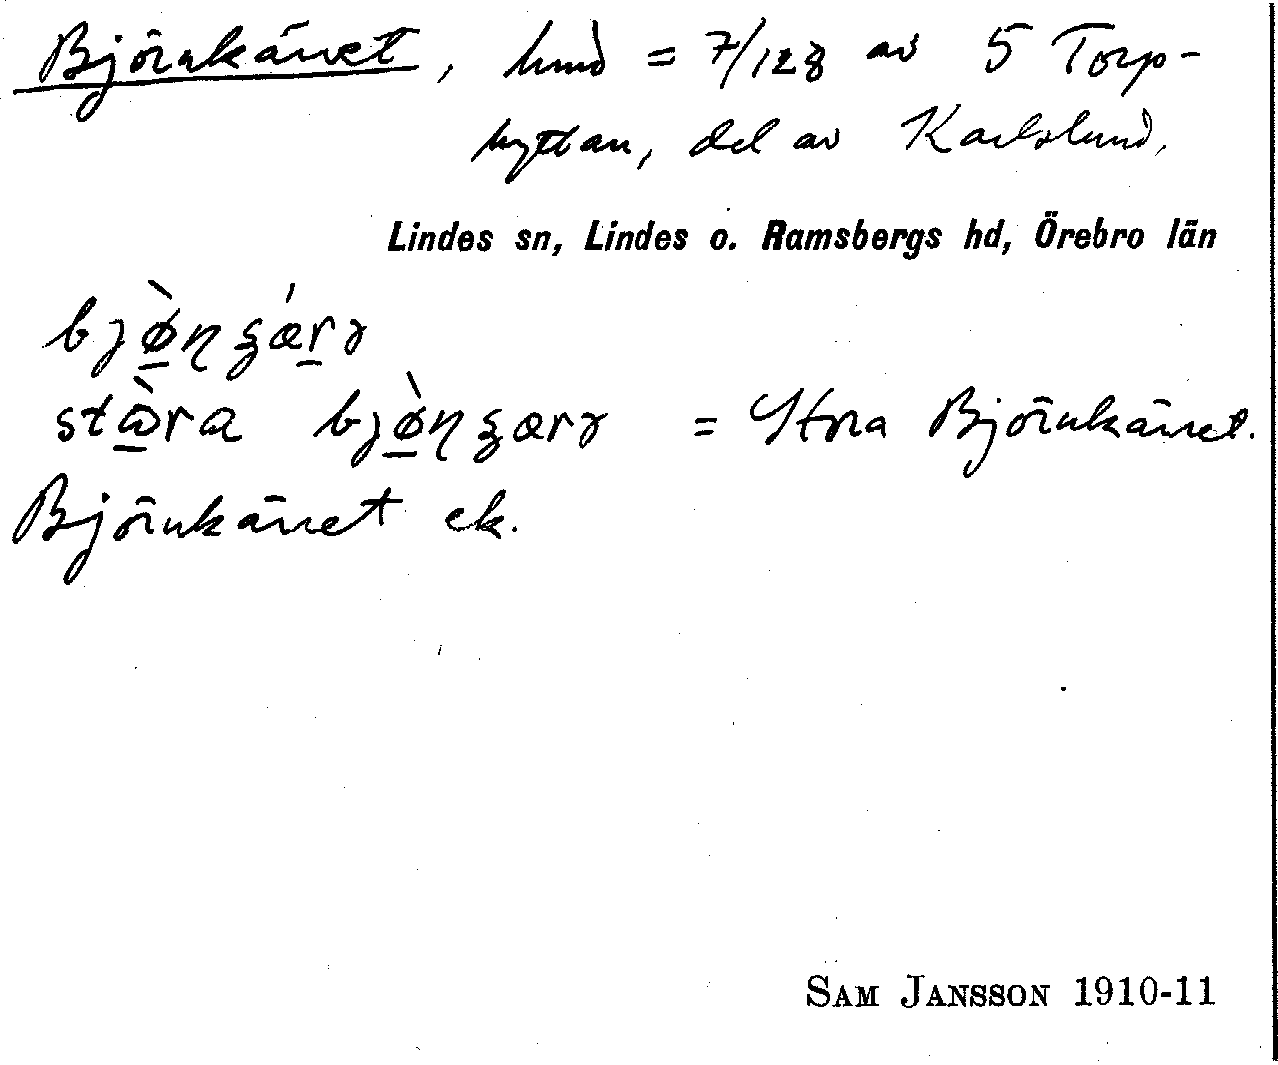 Björnkärret, hmd = 7/128 av 5 Torp-
hyttan, del av Karlslund.
Lindes sn, Lindes o. Ramsbergs hd, Örebro län
= Stora Björnkärret.
Björnkärret ek.
SAM JANSSON 1910-11